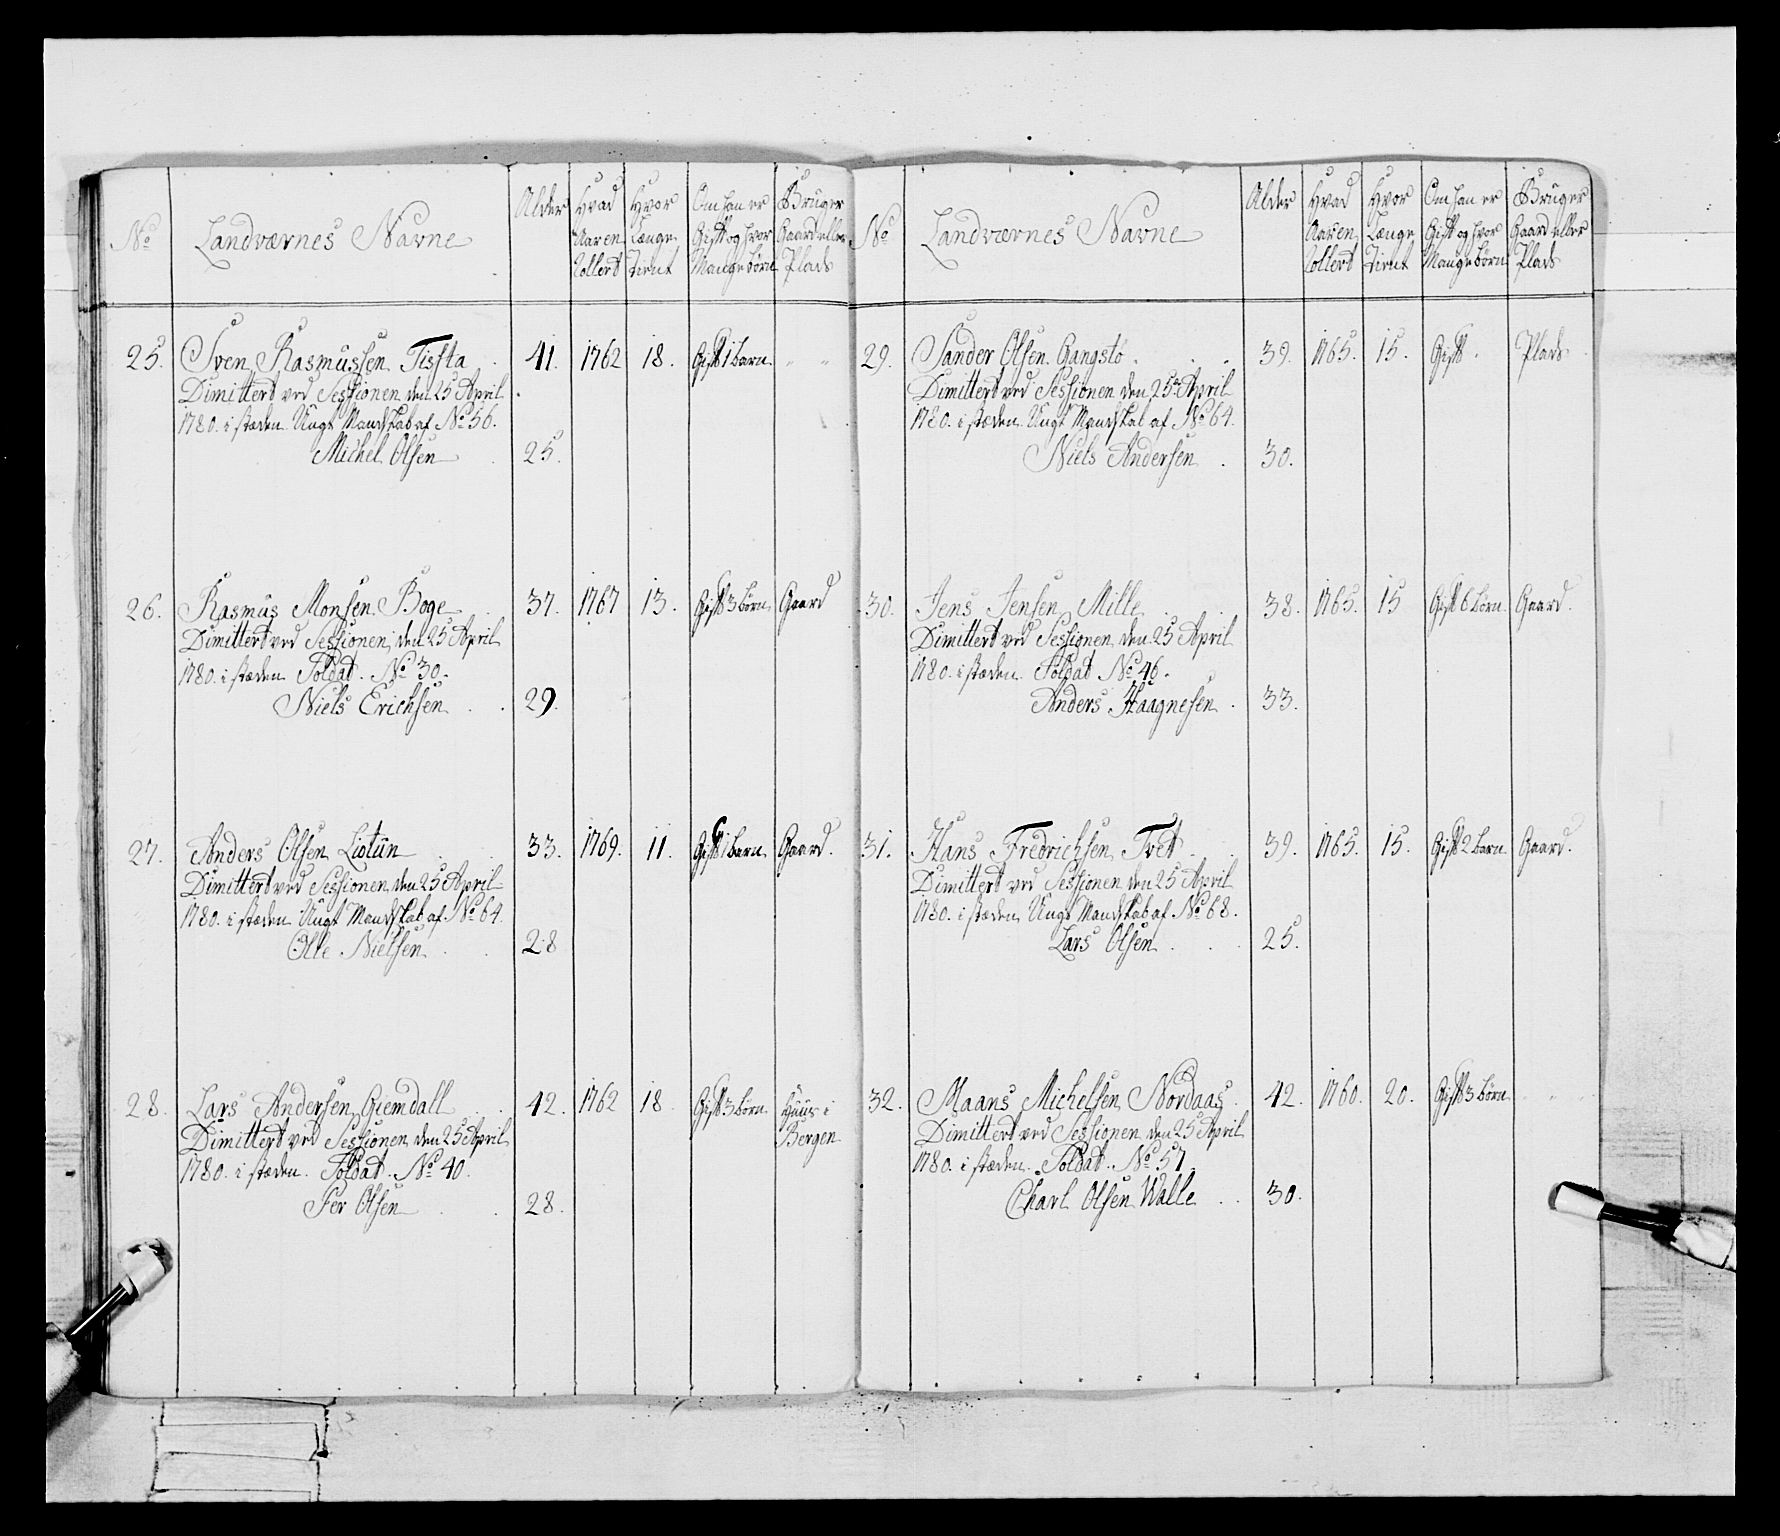 No
Landværnes Navne
Alder
Hvad Aar en Rollert
Hvor Længe Tient
Om han er Gift og hvor Mange børn
Bruger Gaard eller Plads
25. Sven Rasmussen Tissta . 41. 1762 18. Gift 1 barn. " "
Dimittert ved Sessionen den 25 April
1780. i stæden Ungt Mandskab af No 56.
Michel Olsen . 25.
26. Rasmus Monsen Boge . 37. 1767 13. Gift 3 børn Gaard
Dimittert ved Sessionen den 25 April
1780. i stæden Soldat. No 30.
Niels Erichsen . . 29.
27. Anders Olsen Liotun 33. 1769. 11. Gift 1 barn Gaard.
Dimittert ved Sessionen den 25 April
1780. i stæden Ungt Mandskab af No 64.
Olle Nielsen . . 28
28. Lars Andersen Giemdall . 42. 1762 18. Gift 3 børn Huus i
Bergen
Dimittert ved Sessionen den 25 April
1780. i stæden Soldat. No 40.
Per Olsen . . 28.
No
Landværnes Navne
Alder
Hvad Aar en Rollert
Hvor Længe Tient
Om han er Gift og hvor Mange børn
Bruger Gaard eller Plads
29. Sander Olsen Gangstø . . . 39. 1765. 15. Gift . Plads
Dimittert ved Sessionen den 25n April
1780. i stæden Ungt Mandskab af No 64.
Niels Andersen . 30.
30. Jens Jensen Mille . . 38. 1765. 15 Gift 6 børn Gaard.
Dimittert ved Sessionen den 25 April
1780. i stæden Soldat No 46.
Anders Haagnesen . 33.
31. Hans Fredrichsen Tvet . 39. 1765. 15. Gift 2 barn Gaard.
Dimittert ved Sessionen den 25 April
1780. i stæden Ungt Mandskab af No 68.
Lars Olsen . . . 25.
32. Maans Michelsen Nordaas . 42. 1760. 20. Gift 3 børn " "
Dimittert ved Sessionen den 25 April
1780. i stæden Soldat. No 57.
Charl Olsen Walle . . 30.